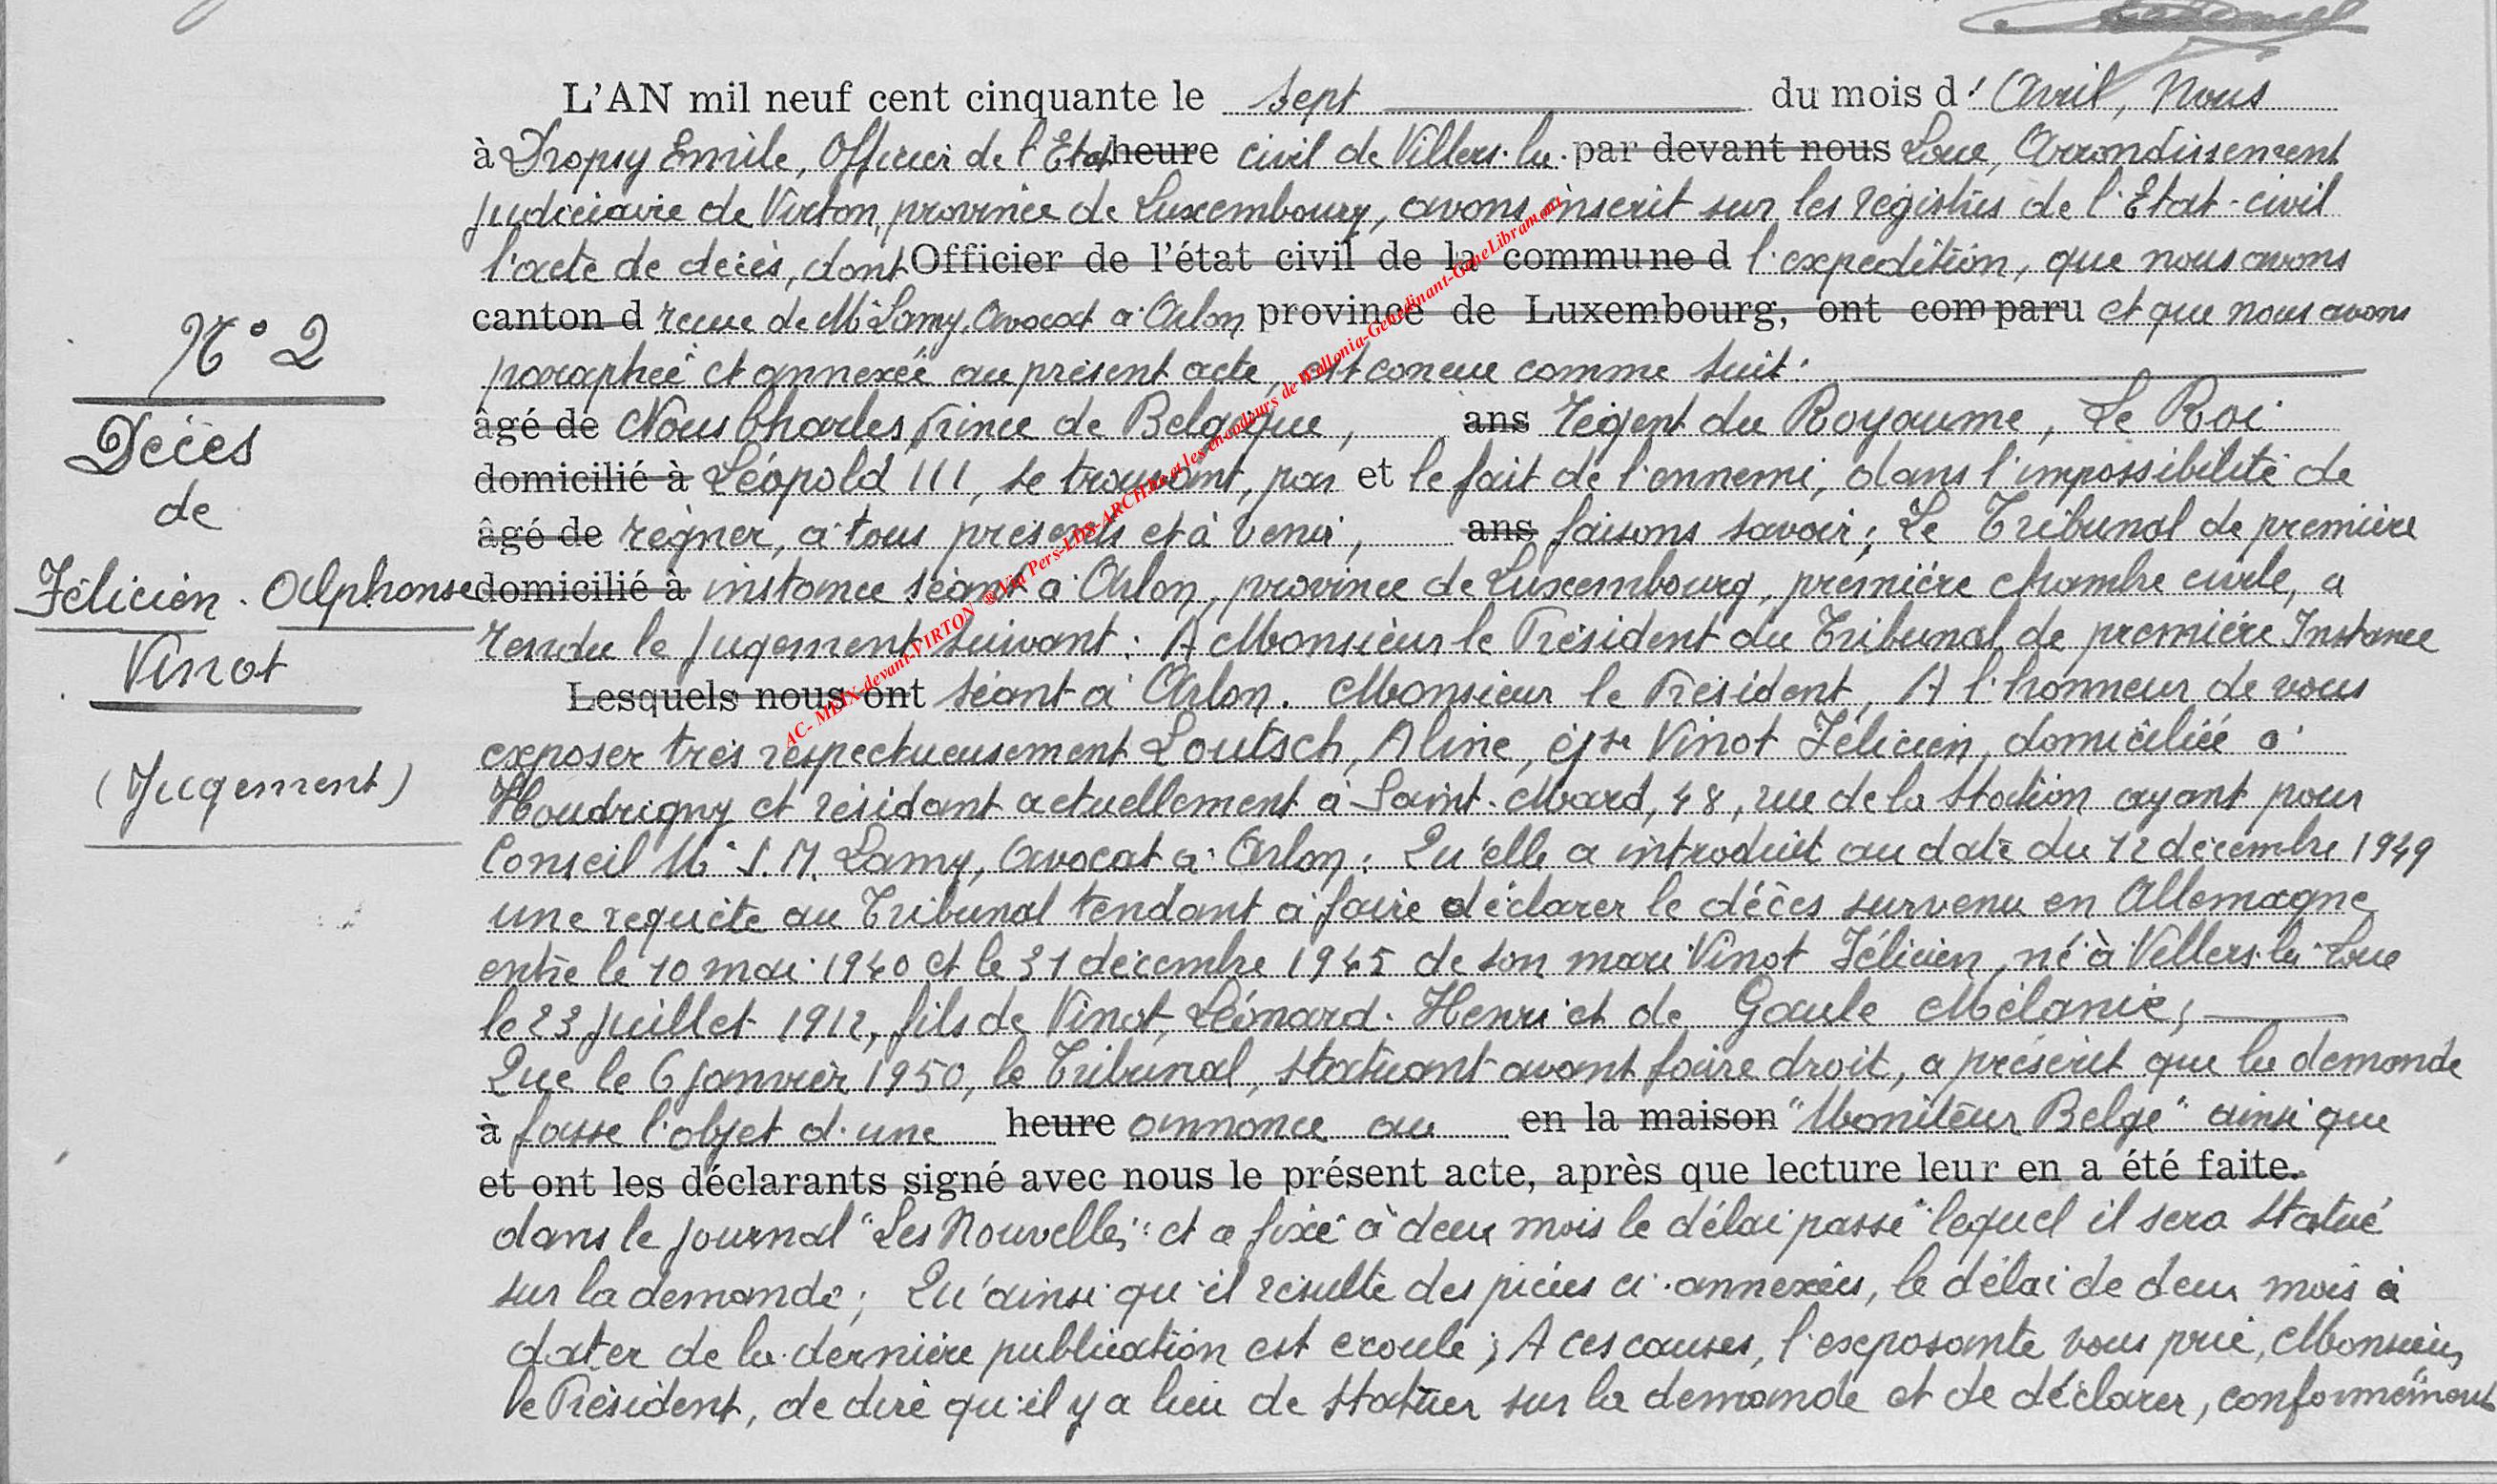 L'AN mil neuf cent cinquante le sept du mois d' Avril, Nous
à Dropsy Emile, Officier de l'Etat heure civil de Villers-la- par devant nous Loue, Arrondissement
judiciaire de Virton, province de Luxembourg, avons inscrit sur les régistres de l'Etat-civil
l'acte de décès, dont Officier de l'état civil de la commune d l'expédition, que nous avons
canton d recue de Me Lamy, Avocat à Arlon province de Luxembourg, ont comparu et que nous avons
N° 2
paraphée et annexée au présent acte, est concue comme suit:
âgé de Nous Charles, Prince de Belgique, ans régent du Royaume, Le Roi
Décès
domicilié à Léopold III, se trouvant, par et le fait de l'ennemi, dans l'impossibilité de
de
âgé de règner, à tous présents et à venir, ans faisons savoir; Le Tribunal de première
Félicien-Alphonse
domicilié à instance séant à Arlon, province de Luxembourg, première chambre civile, a
rendu le jugement suivant: A Monsieur le Président du Tribunal de première Instance
Vinot
Lesquels nous ont séant à Arlon. Monsieur le Président, A l'honneur de vous
exposer très respectueusement Loutsch, Aline, épse Vinot Félicien, domiciliée à
(Jugement)
Houdrigny et résidant actuellement à Saint-Mard, 48, rue de la Station ayant pour
Conseil Me J.M. Lamy, Avocat à Arlon: Qu'elle a introduit au date du 12 décembre 1949
une requête au Tribunal tendant à faire déclarer le décès survenu en Allemagne
entre le 10 mai 1940 et le 31 décembre 1945 de son mari Vinot Félicien, né à Villers-la-Loue
le 23 juillet 1912, fils de Vinot, Léonard-Henri et de Gaule Mélanie;
Que le 6 janvier 1950, le Tribunal, statuant avant faire droit, a préscrit que la demande
à fasse l'objet d'une heure annonce au en la maison "Moniteur Belge" ainsi que
et ont les déclarants signé avec nous le présent acte, après que lecture leur en a été faite.
dans le journal "Les Nouvelles" et a fixé à deux mois le délai passé lequel il sera statué
sur la demande; Qu'ainsi qu'il résulte des pièces ci-annexées, le délai de deux mois à
dater de la dernière publication est écoulé; A ces causes, l'exposante vous prie, Monsieur
le Président, de dire qu'il y a lieu de statuer sur la demande et de déclarer, conformément
AC- MEIX-devant-VIRTON ®Via Pers-LDS-ARCH.be et les encodeurs de Wallonia-Genedinant-GeneLibramont